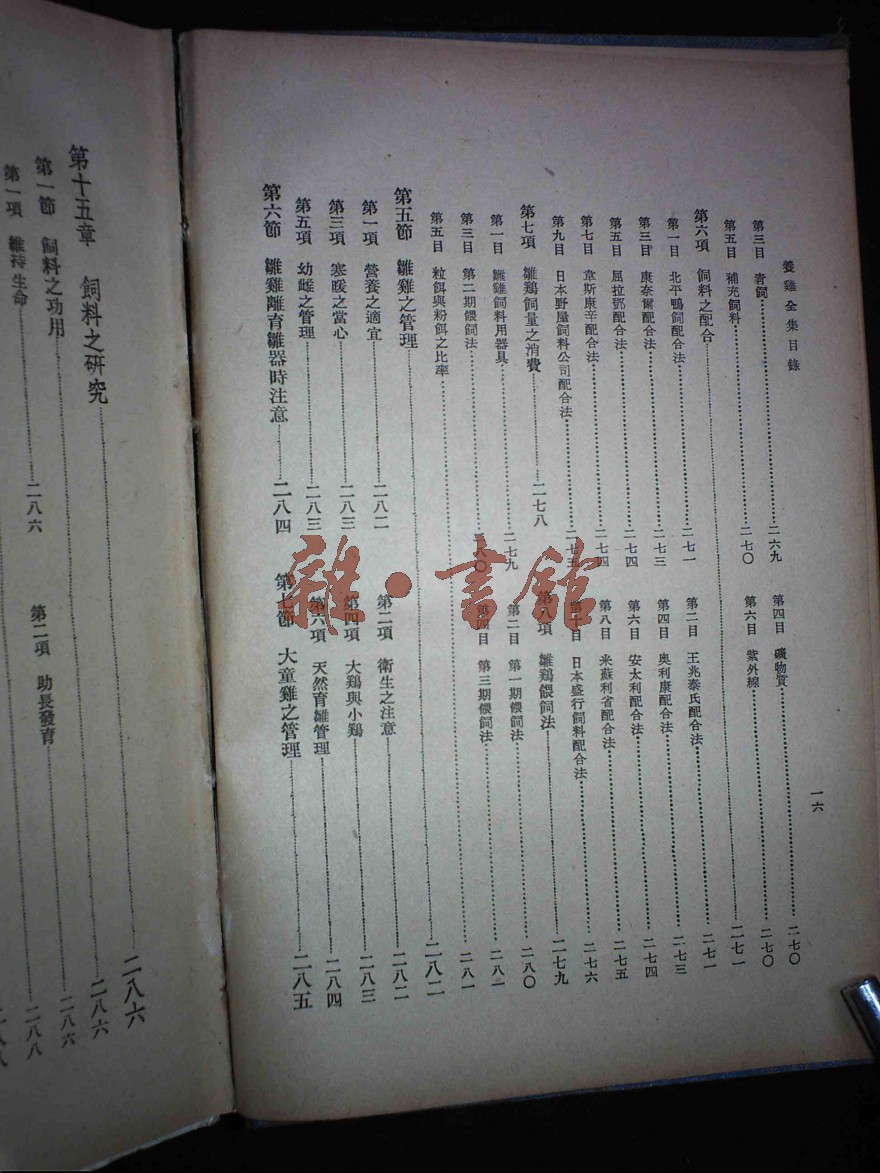 養雞全集目錄 一六
第三目 青飼……二六九 第四目 礦物質……二七〇
第五目 補充飼料……二七〇 第六目 紫外線……二七〇
第六項 飼料之配合……二七一
第一目 北平鴨飼配合法……二七一 第二目 王兆泰氏配合法……二七一
第三目 康奈爾配合法……二七三 第四目 奧利康配合法……二七三
第五目 屈拉鄧配合法……二七四 第六目 安太利配合法……二七四
第七目 韋斯康辛配合法……二七四 第八目 米蘇利省配合法……二七五
第九目 日本野屋飼料公司配合法……二七五 第十目 日本盛行飼料配合法……二七六
第七項 雛鷄飼量之消費……二七八 第八項 雛鷄餵飼法……二七九
第一目 雛雞飼料用器具……二七九 第二目 第一期餵飼法……二八〇
第三目 第二期餵飼法……二八〇 第四目 第三期餵飼法……二八一
第五目 粒餌與粉餌之比率……二八一
第五節 雛雞之管理……二八二
第一項 營養之適宜……二八二 第二項 衛生之注意……二八二
第三項 寒暖之當心……二八三 第四項 大鷄與小鷄……二八三
第五項 幼雌之管理……二八三 第六項 天然育雛管理……二八四
第六節 雛雞離育雛器時注意……二八四 第七節 大童雞之管理……二八五
第十五章 飼料之研究……二八六
第一節 飼料之功用……二八六
第一項 維持生命……二八六 第二項 助長發育……二八六
二八八
二八八
雜·書館